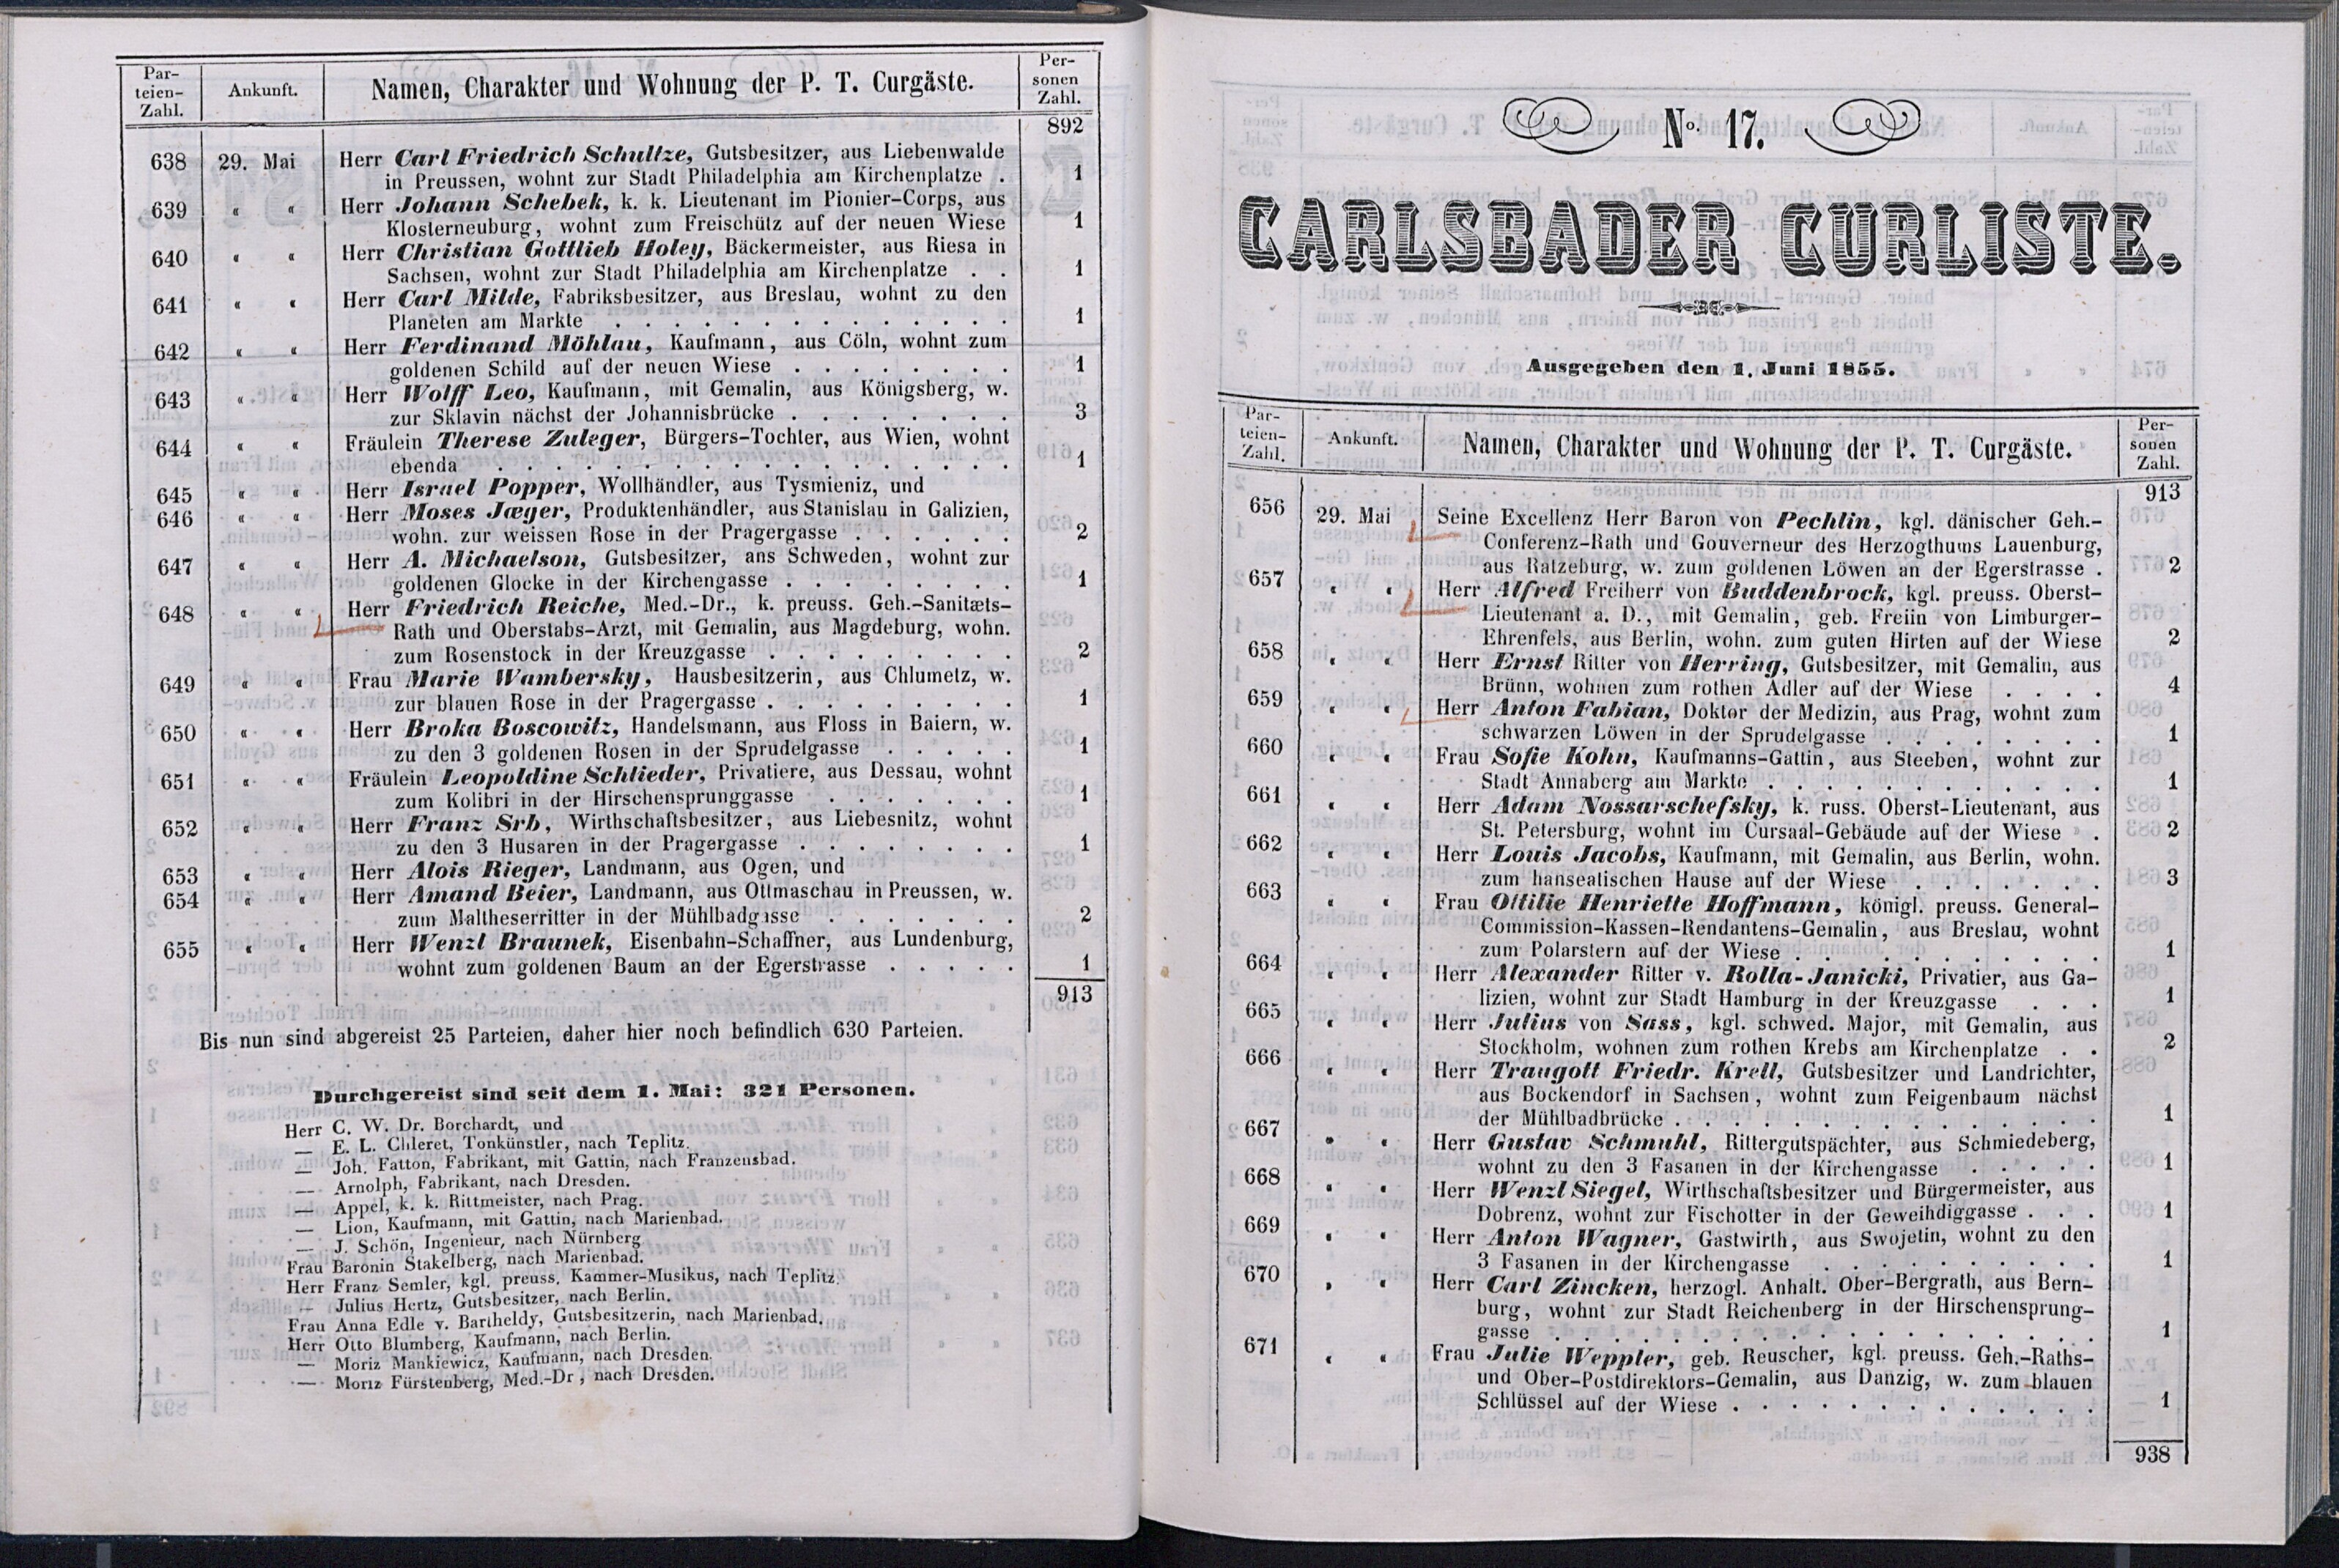 Par-
teien-
Zahl.
Ankunft.
Namen, Charakter und Wohnung der P. T. Curgäste.
Per-
sonen
Zahl.
892
638 29. Mai Herr Carl Friedrich Schultze, Gutsbesitzer, aus Liebenwalde
in Preussen, wohnt zur Stadt Philadelphia am Kirchenplatze . 1
639 « « Herr Johann Schebek, k. k. Lieutenant im Pionier-Corps, aus
Klosterneuburg, wohnt zum Freischütz auf der neuen Wiese 1
640 « « Herr Christian Gottlieb Holey, Bäckermeister, aus Riesa in
Sachsen, wohnt zur Stadt Philadelphia am Kirchenplatze . . 1
641 « « Herr Carl Milde, Fabriksbesitzer, aus Breslau, wohnt zu den
Planeten am Markte . . . . . . . . . . . . . . 1
642 « « Herr Ferdinand Möhlau, Kaufmann, aus Cöln, wohnt zum
goldenen Schild auf der neuen Wiese . . . . . . . . 1
643 « « Herr Wolff Leo, Kaufmann, mit Gemalin, aus Königsberg, w.
zur Sklavin nächst der Johannisbrücke . . . . . . . . 3
644 « « Fräulein Therese Zuleger, Bürgers-Tochter, aus Wien, wohnt
ebenda . . . . . . . . . . . . . . . . . . 1
645 « « Herr Israel Popper, Wollhändler, aus Tysmieniz, und
646 « « Herr Moses Jæger, Produktenhändler, aus Stanislau in Galizien,
wohn. zur weissen Rose in der Pragergasse . . . . . . 2
647 « « Herr A. Michaelson, Gutsbesitzer, ans Schweden, wohnt zur
goldenen Glocke in der Kirchengasse . . . . . . . . 1
648 « « Herr Friedrich Reiche, Med.-Dr., k. preuss. Geh.-Sanitæts-
Rath und Oberstabs-Arzt, mit Gemalin, aus Magdeburg, wohn.
zum Rosenstock in der Kreuzgasse . . . . . . . . . 2
649 « « Frau Marie Wambersky, Hausbesitzerin, aus Chlumetz, w.
zur blauen Rose in der Pragergasse . . . . . . . . . 1
650 « « Herr Broka Boscowitz, Handelsmann, aus Floss in Baiern, w.
zu den 3 goldenen Rosen in der Sprudelgasse . . . . . 1
651 « « Fräulein Leopoldine Schlieder, Privatiere, aus Dessau, wohnt
zum Kolibri in der Hirschensprunggasse . . . . . . . 1
652 « « Herr Franz Srb, Wirthschaftsbesitzer, aus Liebesnitz, wohnt
zu den 3 Husaren in der Pragergasse . . . . . . . . 1
653 « « Herr Alois Rieger, Landmann, aus Ogen, und
654 « « Herr Amand Beier, Landmann, aus Ottmaschau in Preussen, w.
zum Maltheserritter in der Mühlbadgasse . . . . . . . 2
655 « « Herr Wenzl Braunek, Eisenbahn-Schaffner, aus Lundenburg,
wohnt zum goldenen Baum an der Egerstrasse . . . . . 1
913
Bis nun sind abgereist 25 Parteien, daher hier noch befindlich 630 Parteien.
Durchgereist sind seit dem 1. Mai: 321 Personen.
Herr C. W. Dr. Borchardt, und
— E. L. Chleret, Tonkünstler, nach Teplitz.
— Joh. Fatton, Fabrikant, mit Gattin, nach Franzensbad.
— Arnolph, Fabrikant, nach Dresden.
— Appel, k. k. Rittmeister, nach Prag.
— Lion, Kaufmann, mit Gattin, nach Marienbad.
— J. Schön, Ingenieur, nach Nürnberg
Frau Baronin Stakelberg, nach Marienbad.
Herr Franz Semler, kgl. preuss. Kammer-Musikus, nach Teplitz.
— Julius Hertz, Gutsbesitzer, nach Berlin.
Frau Anna Edle v. Bartheldy, Gutsbesitzerin, nach Marienbad.
Herr Otto Blumberg, Kaufmann, nach Berlin.
— Moriz Mankiewicz, Kaufmann, nach Dresden.
— Moriz Fürstenberg, Med.-Dr, nach Dresden.
No. 17.
CARLSBADER CURLISTE.
Ausgegeben den 1. Juni 1855.
Par-
teien-
Zahl.
Ankunft.
Namen, Charakter und Wohnung der P. T. Curgäste.
Per-
sonen
Zahl.
913
656 29. Mai Seine Excellenz Herr Baron von Pechlin, kgl. dänischer Geh.-
Conferenz-Rath und Gouverneur des Herzogthums Lauenburg,
aus Ratzeburg, w. zum goldenen Löwen an der Egerstrasse . 2
657 « « Herr Alfred Freiherr von Buddenbrock, kgl. preuss. Oberst-
Lieutenant a. D., mit Gemalin, geb. Freiin von Limburger-
Ehrenfels, aus Berlin, wohn. zum guten Hirten auf der Wiese 2
658 « « Herr Ernst Ritter von Herring, Gutsbesitzer, mit Gemalin, aus
Brünn, wohnen zum rothen Adler auf der Wiese . . . . 4
659 « « Herr Anton Fabian, Doktor der Medizin, aus Prag, wohnt zum
schwarzen Löwen in der Sprudelgasse . . . . . . . . 1
660 « « Frau Sofie Kohn, Kaufmanns-Gattin, aus Steeben, wohnt zur
Stadt Annaberg am Markte . . . . . . . . . . . . 1
661 « « Herr Adam Nossarschefsky, k. russ. Oberst-Lieutenant, aus
St. Petersburg, wohnt im Cursaal-Gebäude auf der Wiese . 2
662 « « Herr Louis Jacobs, Kaufmann, mit Gemalin, aus Berlin, wohn.
zum hanseatischen Hause auf der Wiese . . . . . . . 3
663 « « Frau Ottilie Henriette Hoffmann, königl. preuss. General-
Commission-Kassen-Rendantens-Gemalin, aus Breslau, wohnt
zum Polarstern auf der Wiese . . . . . . . . . . . 1
664 « « Herr Alexander Ritter v. Rolla-Janicki, Privatier, aus Ga-
lizien, wohnt zur Stadt Hamburg in der Kreuzgasse . . . 1
665 « « Herr Julius von Sass, kgl. schwed. Major, mit Gemalin, aus
Stockholm, wohnen zum rothen Krebs am Kirchenplatze . . 2
666 « « Herr Traugott Friedr. Krell, Gutsbesitzer und Landrichter,
aus Bockendorf in Sachsen, wohnt zum Feigenbaum nächst
der Mühlbadbrücke . . . . . . . . . . . . . . . 1
667 « « Herr Gustav Schmuhl, Rittergutspächter, aus Schmiedeberg,
wohnt zu den 3 Fasanen in der Kirchengasse . . . . . 1
668 « « Herr Wenzl Siegel, Wirthschaftsbesitzer und Bürgermeister, aus
Dobrenz, wohnt zur Fischotter in der Geweihdiggasse . . . 1
669 « « Herr Anton Wagner, Gastwirth, aus Swojetin, wohnt zu den
3 Fasanen in der Kirchengasse . . . . . . . . . . 1
670 « « Herr Carl Zincken, herzogl. Anhalt. Ober-Bergrath, aus Bern-
burg, wohnt zur Stadt Reichenberg in der Hirschensprung-
gasse . . . . . . . . . . . . . . . . . . . 1
671 « « Frau Julie Weppler, geb. Reuscher, kgl. preuss. Geh.-Raths-
und Ober-Postdirektors-Gemalin, aus Danzig, w. zum blauen
Schlüssel auf der Wiese . . . . . . . . . . . . . 1
938